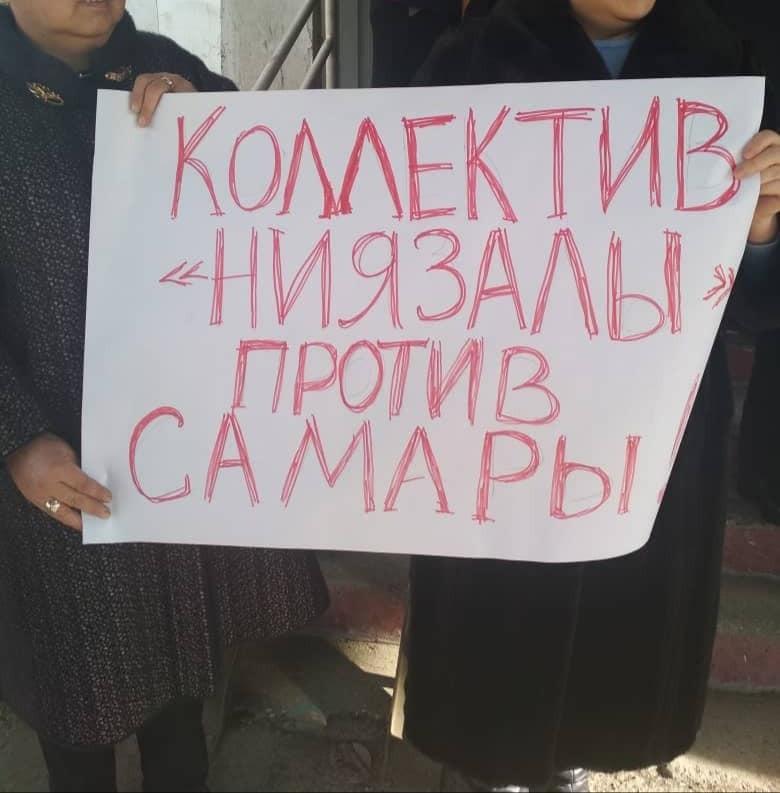 КОЛЛЕКТИВ
«НИЯЗАЛЫ»
ПРОТИВ
САМАРЫ!